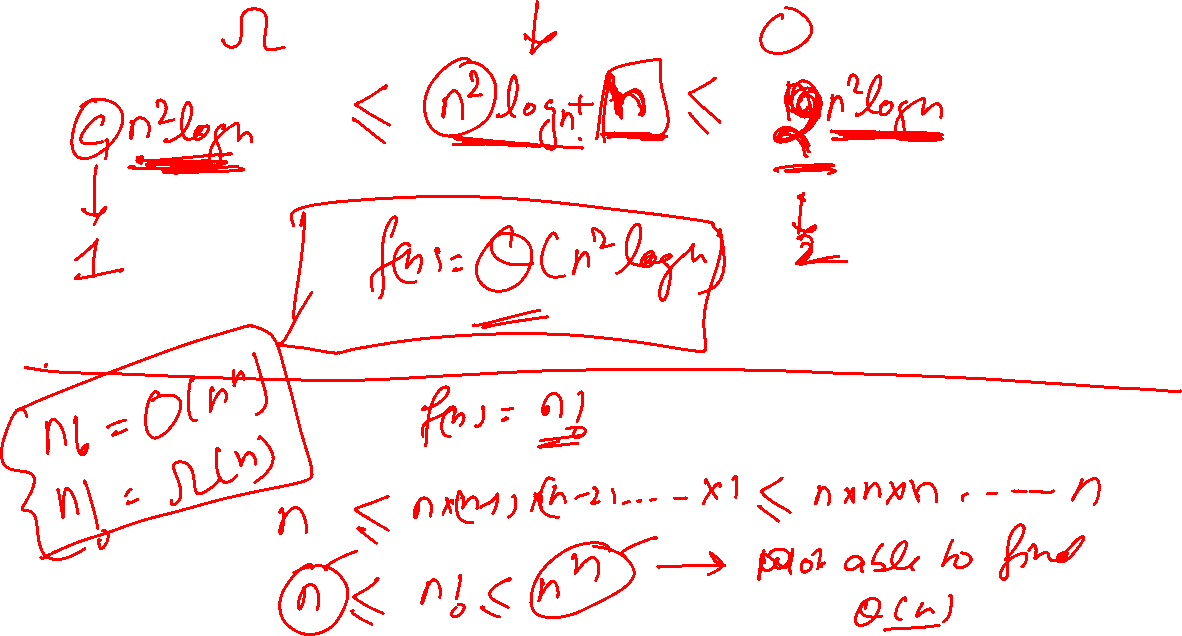 Ω O
C₁ n² log n ≤ n² log n + n ≤ 2 n² log n
1 2
f(n) = Θ(n² log n)
n! = O(nⁿ)
n! = Ω(n)
f(n) = n!
n ≤ n×(n-1)×(n-2)....-×1 ≤ n×n×n.---- n
n ≤ n! ≤ nⁿ → not able to find
Θ(n)